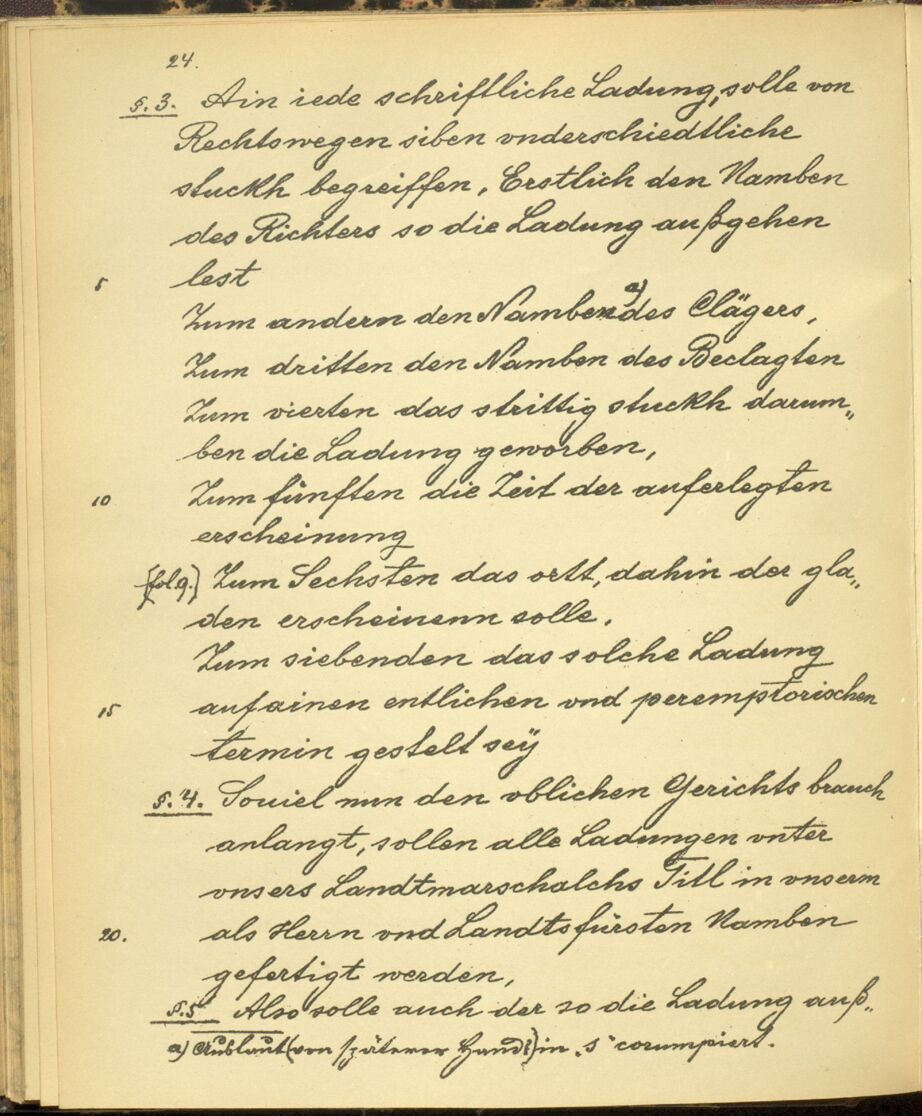 24.
§. 3. Ain iede schriftliche Ladung, solle von
Rechtswegen siben vnderschiedtliche
stuckh begreiffen, Erstlich den Namben
des Richters so die Ladung außgehen
5 lest
Zum andern den Namben a) des Clägers,
Zum dritten den Namben des Beclagten
Zum vierten das strittig stuckh darum„
ben die Ladung geworben,
10 Zum fünften die Zeit der auferlegten
erscheinung
(fol. 9.) Zum Sechsten das ortt, dahin der gla„
den erscheinenn solle.
Zum siebenden das solche Ladung
15 auf ainen entlichen vnd peremptorischen
termin gestelt seÿ
§. 4. Souiel nun den vblichen Gerichts brauch
anlangt, sollen alle Ladungen vnter
vnsers Landtmarschalchs Titl in vnserm
20. als Herrn vnd Landtsfürsten Namben
gefertigt werden,
§. 5 Also solle auch der so die Ladung auß„
a) Auslaut (von späterer Hand?) in „s" corumpiert.